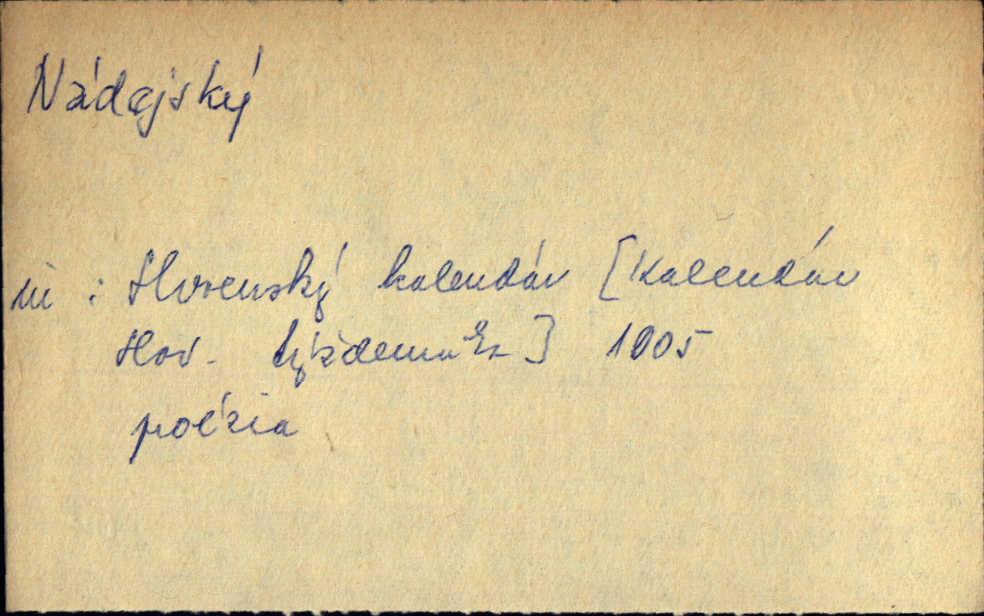 Nádajský
in : Slovenský kalendár [Kalendár
slov. týždenníka] 1905
poézia